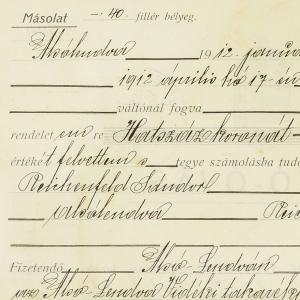 Másolat — 40. fillér bélyeg.
Alsólendva 1912. januá
1912 április hó 17-én
váltónál fogva
rendelet em re Hatszáz koronát
értékét felvettem s tegye számolásba tud
Reichenfeld Sándor
Alsólendva Rei
Fizetendő Alsó-Lendván
az Alsó-Lendva Vidéki takarék